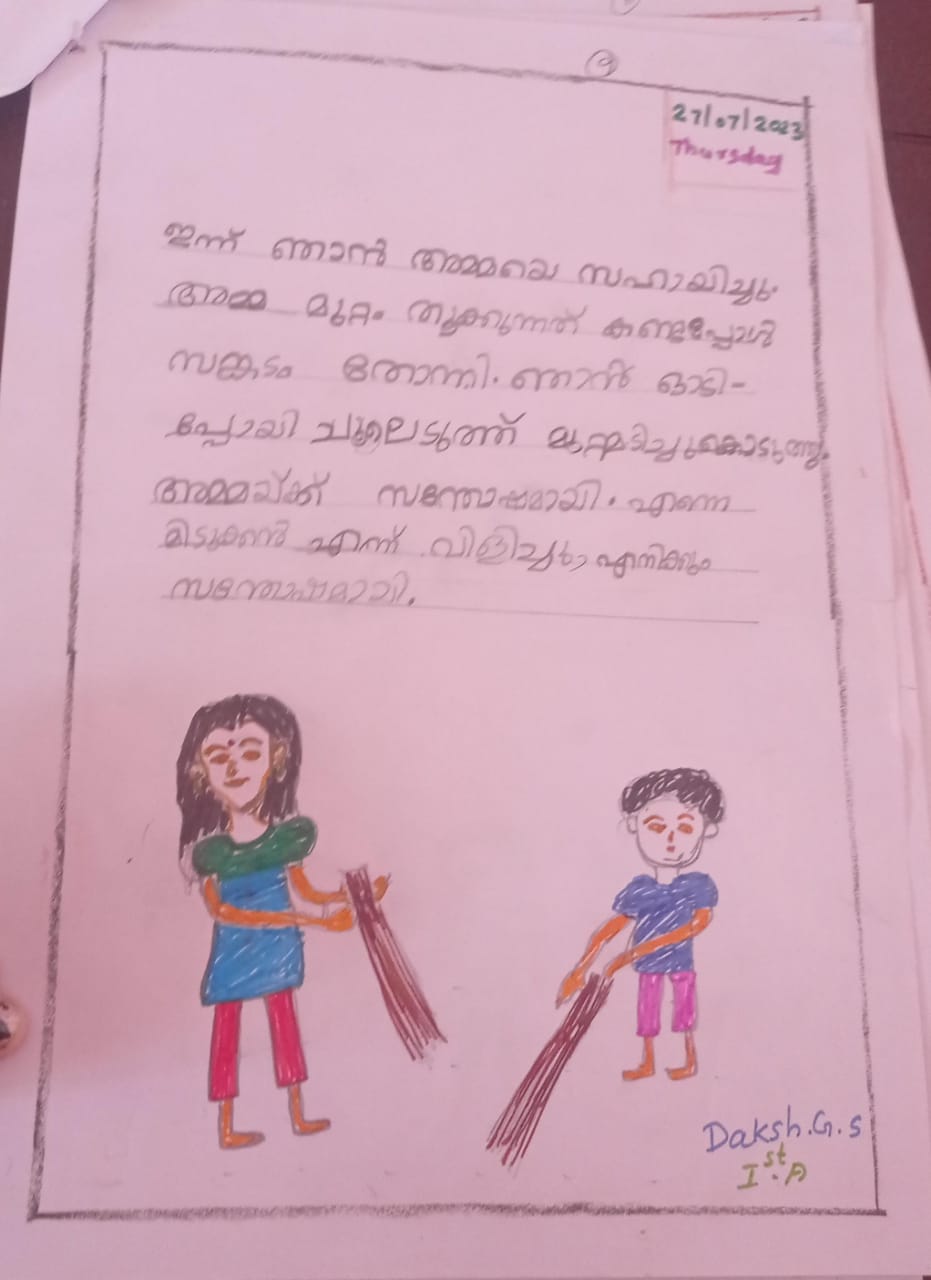 9
27/07/2023
Thursday
ഇന്ന് ഞാൻ അമ്മയെ സഹായിച്ചു.
അമ്മ മുറ്റം തൂക്കുന്നത് കണ്ടപ്പോൾ
സങ്കടം തോന്നി. ഞാൻ ഓടി-
പ്പോയി ചൂലെടുത്ത് മുറ്റമടിച്ചുകൊടുത്തു.
അമ്മയ്ക്ക് സന്തോഷമായി. എന്നെ
മിടുക്കൻ എന്ന് വിളിച്ചു, എനിക്കും
സന്തോഷമായി.
Daksh.G.S
Ist.A